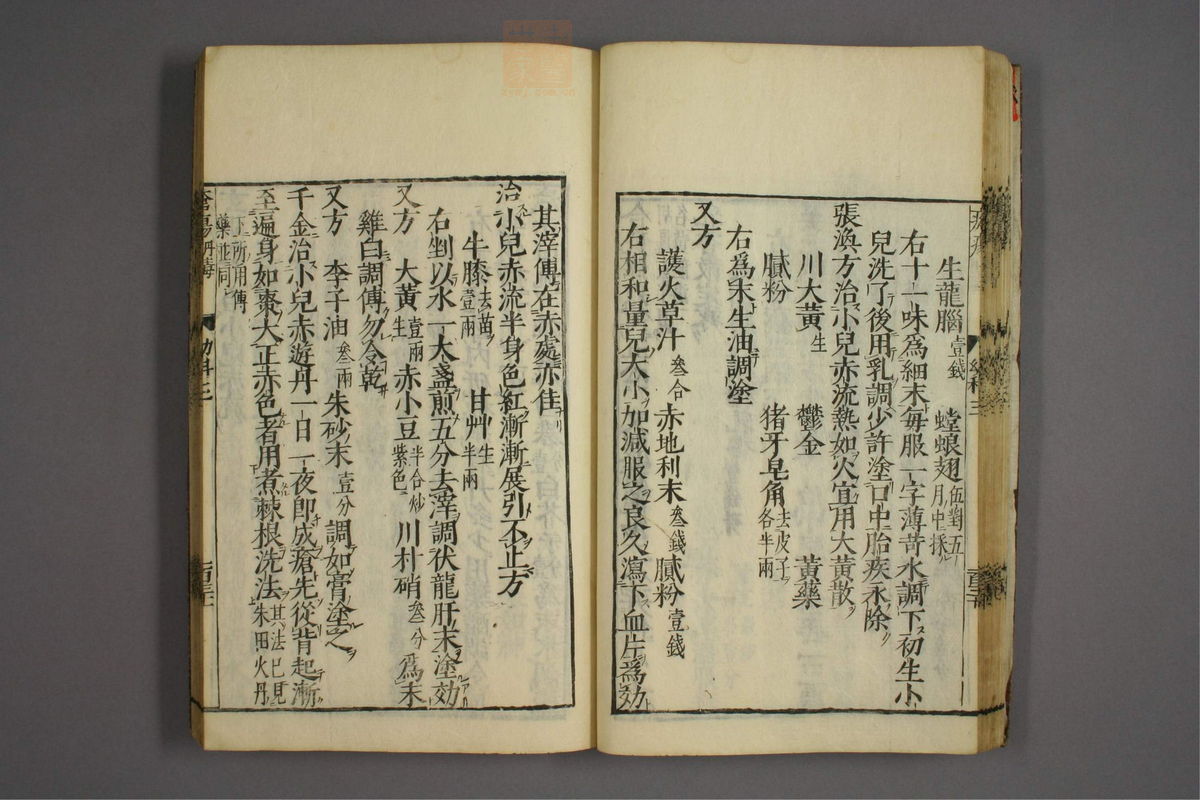 生龍腦壹錢 螳蜋翅伍對五月中採
右十一味爲細末每服一字薄苛水調下初生小
兒洗了後用乳調少許塗口中胎疾永除
張渙方治小兒赤流熱如火宜用大黃散
川大黃生 鬱金 黃蘗
膩粉 猪牙皂角去皮子各半兩
右爲末生油調塗
又方
護火草汁叁合 赤地利末叁錢 膩粉壹錢
右相和量兒大小加減服之良久瀉下血片爲効
其滓傅在赤處亦佳
治小兒赤流半身色紅漸漸展引不止方
牛膝去苗壹兩 甘艸生半兩
右剉以水一大盞煎五分去滓調伏龍肝末塗効
又方 大黃壹兩生 赤小豆半合炒紫色 川朴硝叁分爲末
雞白調傅勿令乾
又方 李子油叁兩 朱砂末壹分調如膏塗之
千金治小兒赤遊丹一日一夜卽成瘡先從背起漸
至遍身如棗大正赤色者用煮棘根洗法其法已見朱田火丹
下所用傅藥並同
瘡瘍丹毒 幼科三